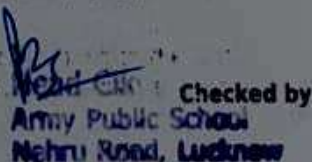 Head Checked by
Army Public School
Nehru Road, Lucknow